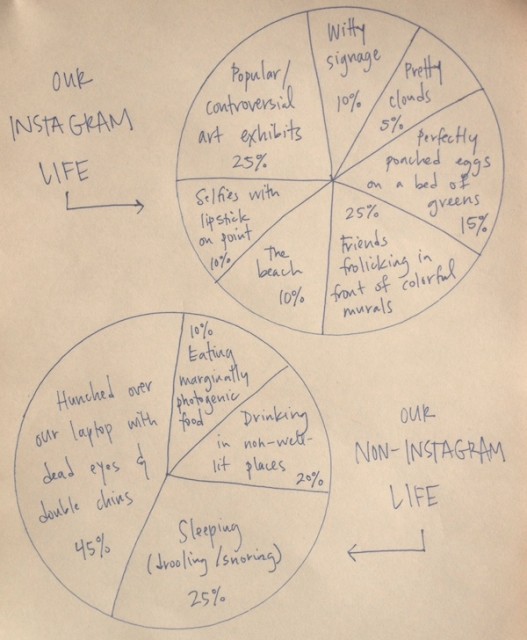 OUR
INSTAGRAM
LIFE
Popular/
controversial
art exhibits
25%
Witty
signage
10%
Pretty
clouds
5%
Perfectly
poached eggs
on a bed of
greens
15%
25%
Friends
frolicking in
front of colorful
murals
The
beach
10%
Selfies with
lipstick
on point
10%
10%
Eating
marginally
photogenic
food
Drinking
in non-well-
lit places
20%
Sleeping
(drooling/snoring)
25%
Hunched over
our laptop with
dead eyes &
double chins
45%
OUR
NON-INSTAGRAM
LIFE